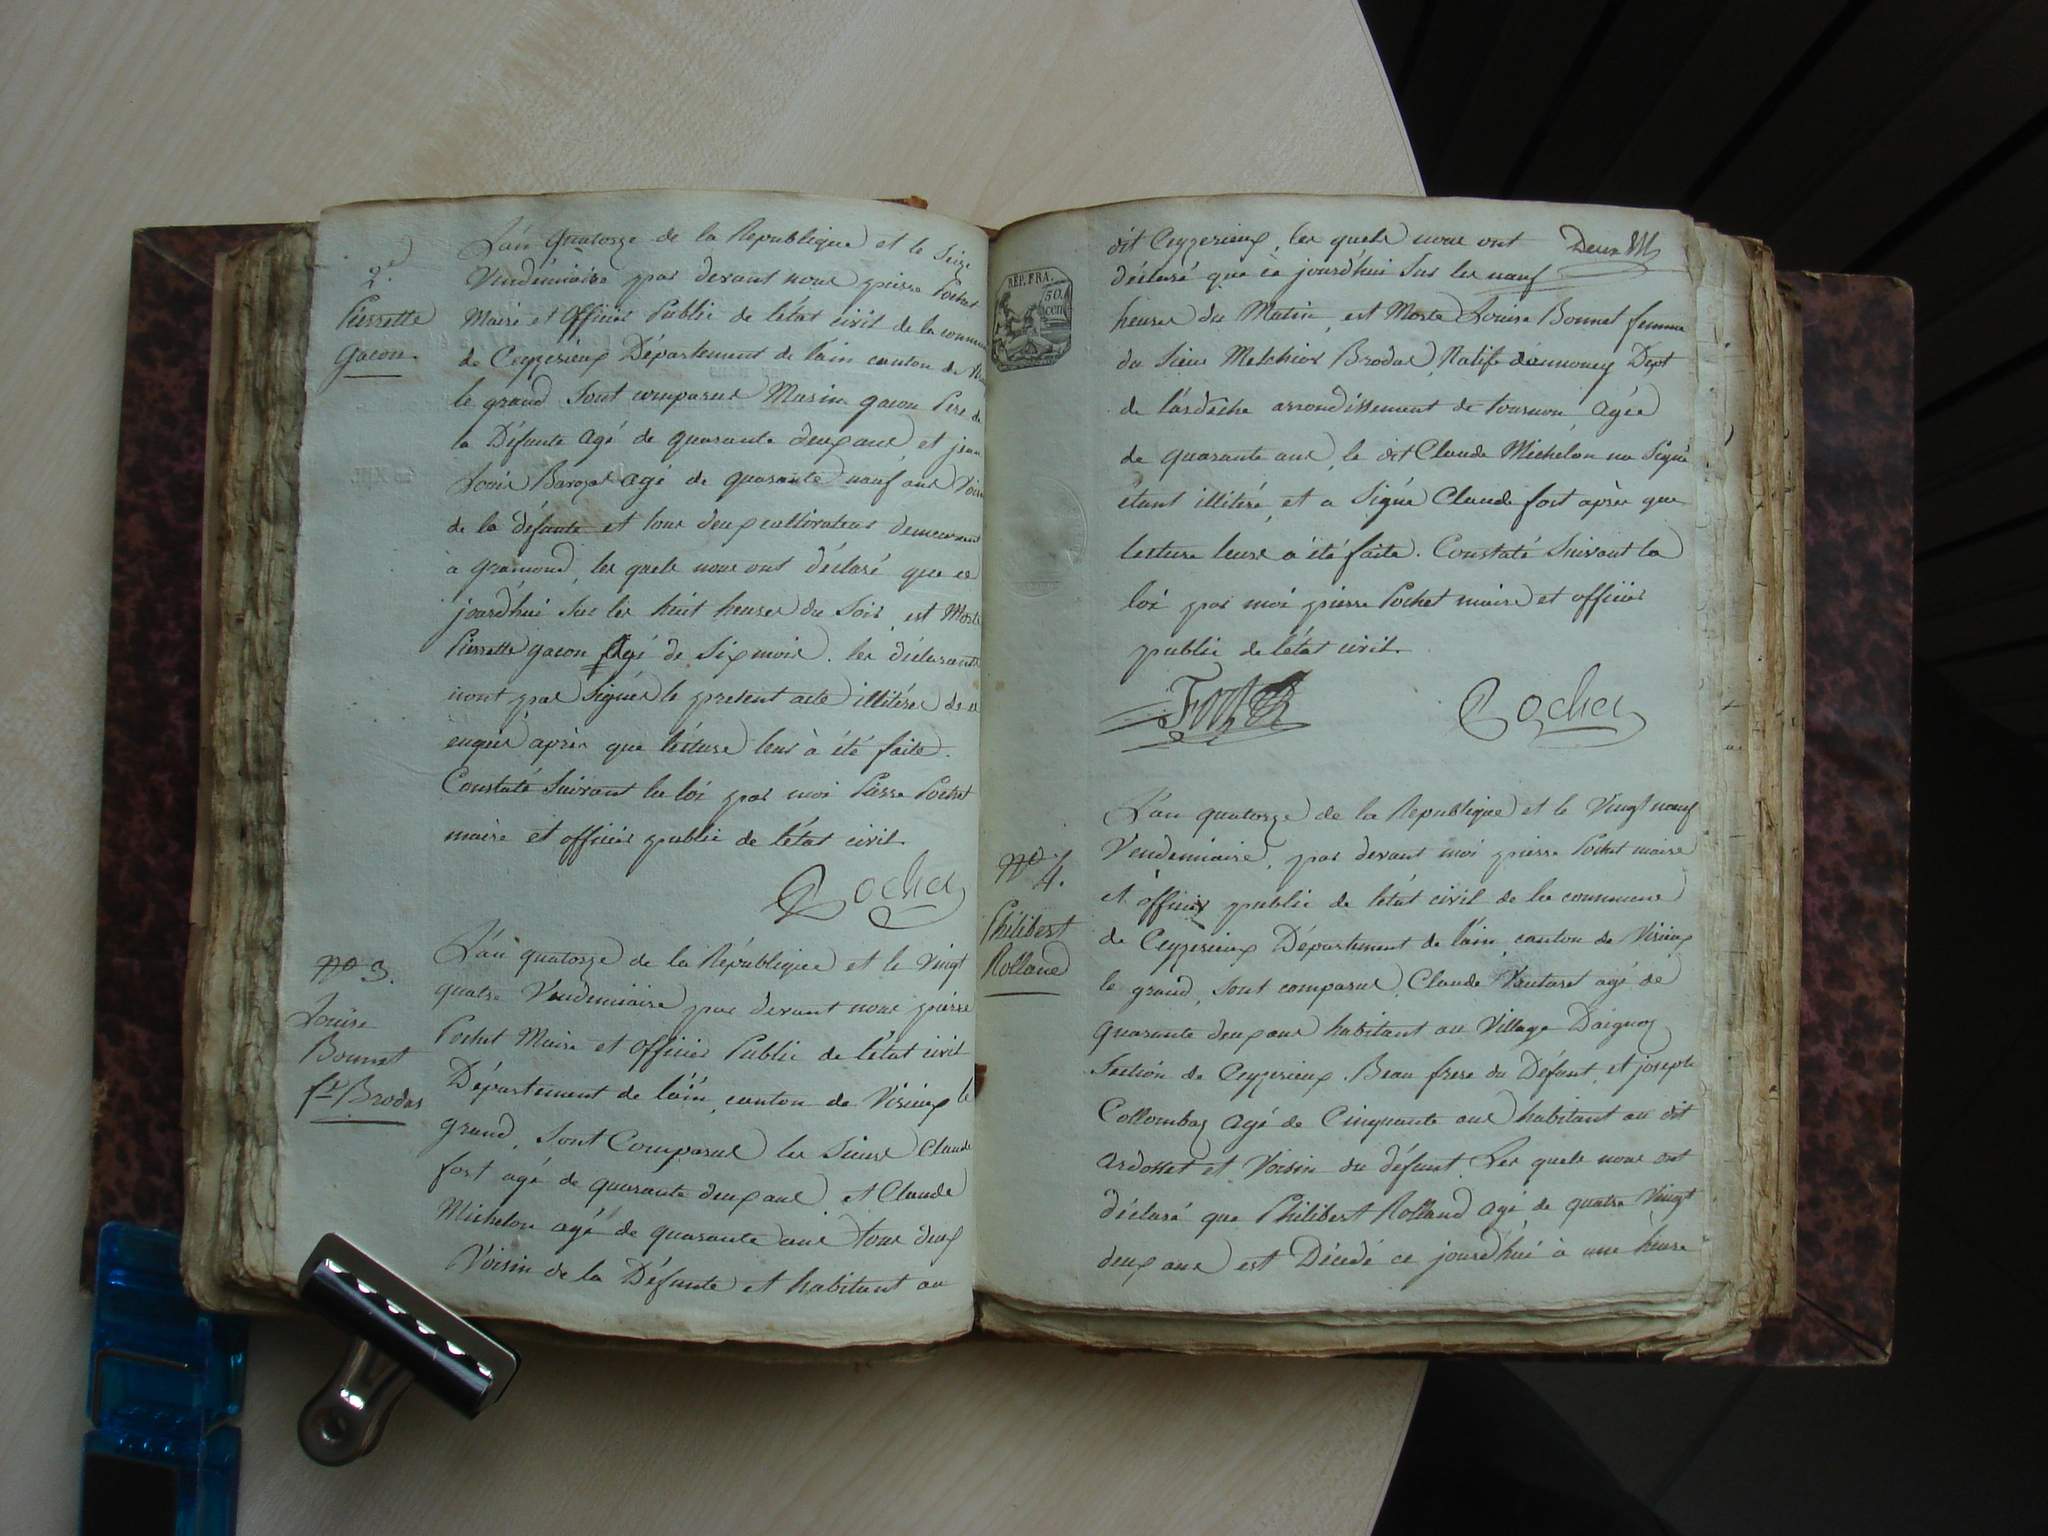 2e
Pierrette
gacon.
L'an quatorze de la République et le Seize
Vendémiaire par devant nous pierre Pochet
Maire et Officier Public de l'état civil de la commune
de Ceyzerieux Département de l'ain canton de
le grand Sont comparus Marin gacon Pere de
la Défunte Agé de quarante deux ans et jean
Louis Barozat agé de quarante neuf ans Voisin
de la défunte et tous deux cultivateurs demeurant
à gramond, les quels nous ont déclaré que ce
jourd'hui Sur les huit heures du Soir, est Morte
Pierrette gacon Agé de Six mois. les déclarants
n'ont pas Signés le présent acte illitérés de ce
enquis après que lécture leur à été faite.
Constaté Suivant la loi par moi Pierre Pochet
maire et officier public de l'état civil.
Pochet
No 3.
Louise
Bonnet
fe Brodas
L'an quatorze de la République et le Vingt
quatre Vendemiaire par devant nous pierre
Pochet Maire et Officier Public de l'état civil
Département de l'ain, canton de Virieux le
grand, Sont Comparus les Sieurs Claude
fort agé de quarante deux ans, et Claude
Michelon agé de quarante ans tous deux
Voisin de la Défunte et habitant au
REP. FRA.
50
cent
dit Ceyzerieux, les quels nous ont Deux
déclaré que ce jourd'hui Sur les neuf
heures du Matin, est Morte Louise Bonnet femme
du Sieur Melchior Brodas, Natife d'annonay Dept
de l'ardèche arrondissement de tournon, Agée
de quarante ans, le dit Claude Michelon na Signé
étant illitéré, et a Signé Claude fort après que
lecture leurs a été faite. Constaté Suivant la
loi par moi pierre Pochet maire et officier
public de l'état civil.
Fort Pochet
No 4.
Philibert
Rolland
L'an quatorze de la République et le Vingt neuf
Vendemiaire, par devant moi pierre Pochet maire
et officier public de l'état civil de la commune
de Ceyzerieux Département de l'ain, canton de Virieux
le grand, Sont comparus, Claude agé de
quarante deux ans habitant au Village Daignoz
Section de Ceyzerieux Beau frere du Défunt, et joseph
Collombaz agé de Cinquante ans habitant au dit
Ardosset et Voisin du défunt Les quels nous ont
déclaré que Philibert Rolland agé de quatre Vingt
deux ans est Décédé ce jourd'hui à une heure